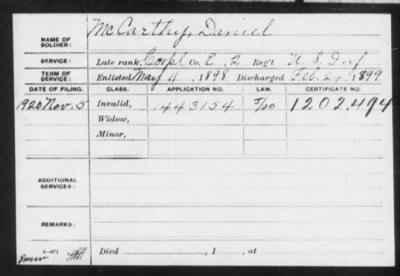 McCarthy, Daniel
NAME OF SOLDIER:
SERVICE: Late rank, Corpl Co. E, 2 Reg't U. S. Inf
TERM OF SERVICE: Enlisted May 11, 1898 Discharged Feb. 24, 1899
DATE OF FILING. CLASS. APPLICATION NO. LAW. CERTIFICATE NO.
1920 Nov. 5 Invalid, 1443154 1202,494
Widow,
Minor,
ADDITIONAL SERVICES:
REMARKS:
Died , 1 , at